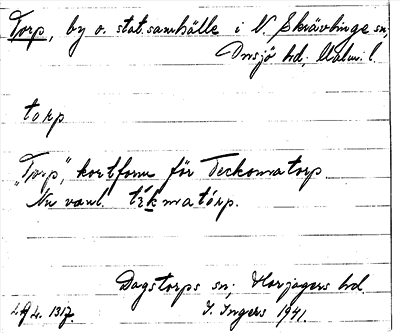 Torp, by o. stat.samhälle i N. Skrävlinge sn;
Onsjö hd; Malm. l.
torp
„Torp”, kortform för Teckomatorp
Nu vanl. tèkmatórp.
Dagstorps sn; Harjagers hd.
I. Ingers 1941.